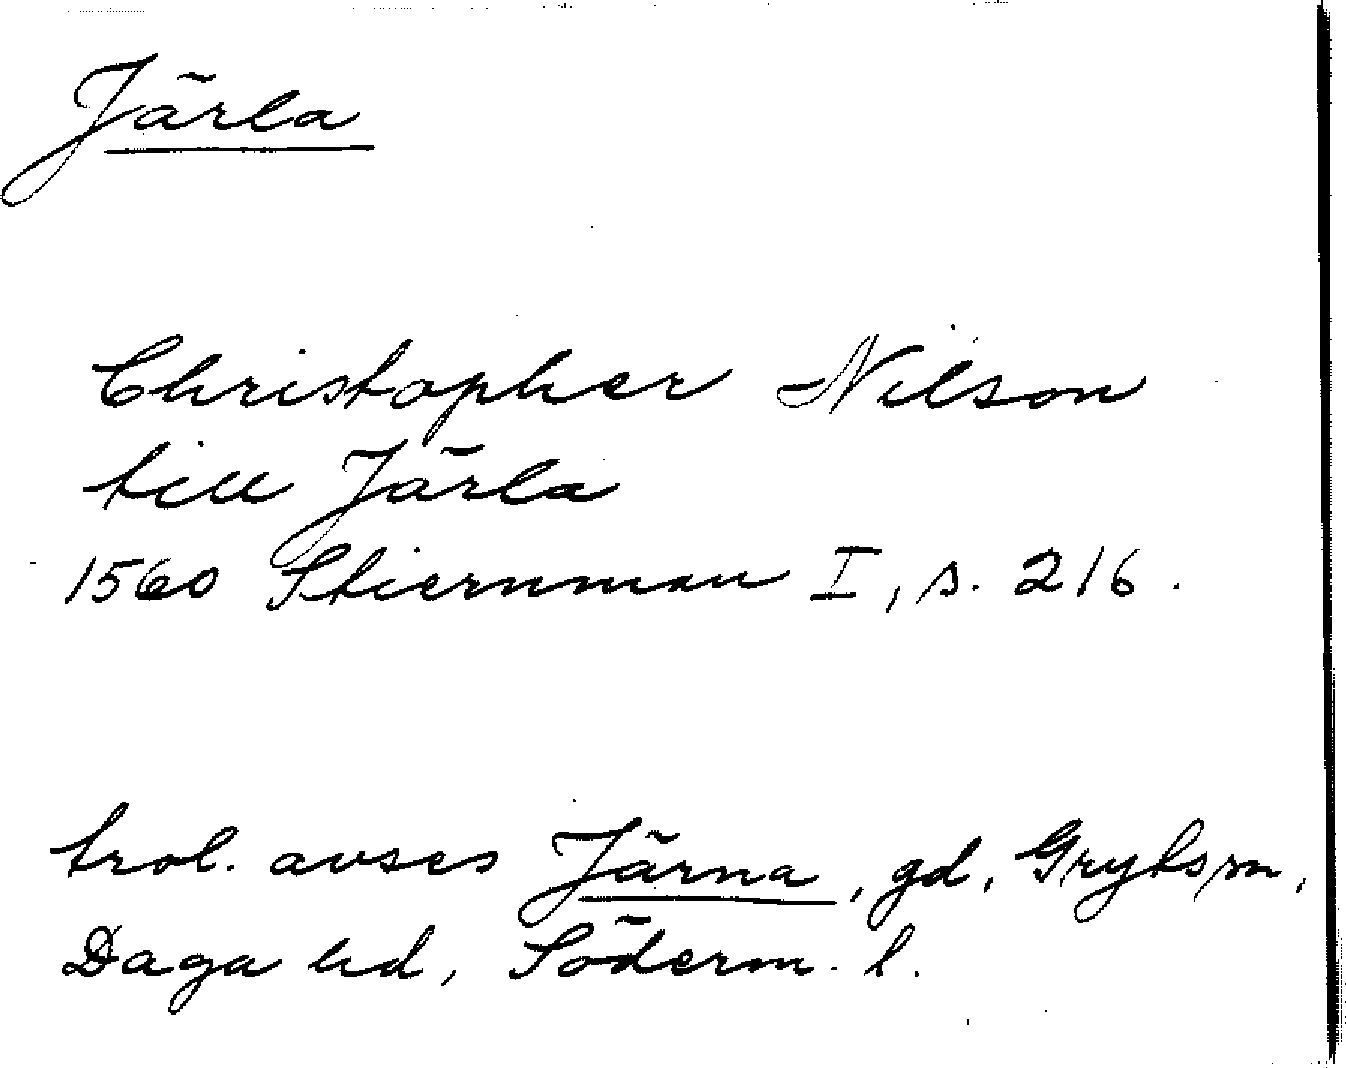 Järla
Christopher Nilson
till Järla
1560 Stiernman I, s. 216.
trol. avses Järna, gd, Gryts sn,
Daga hd, Söderm. l.